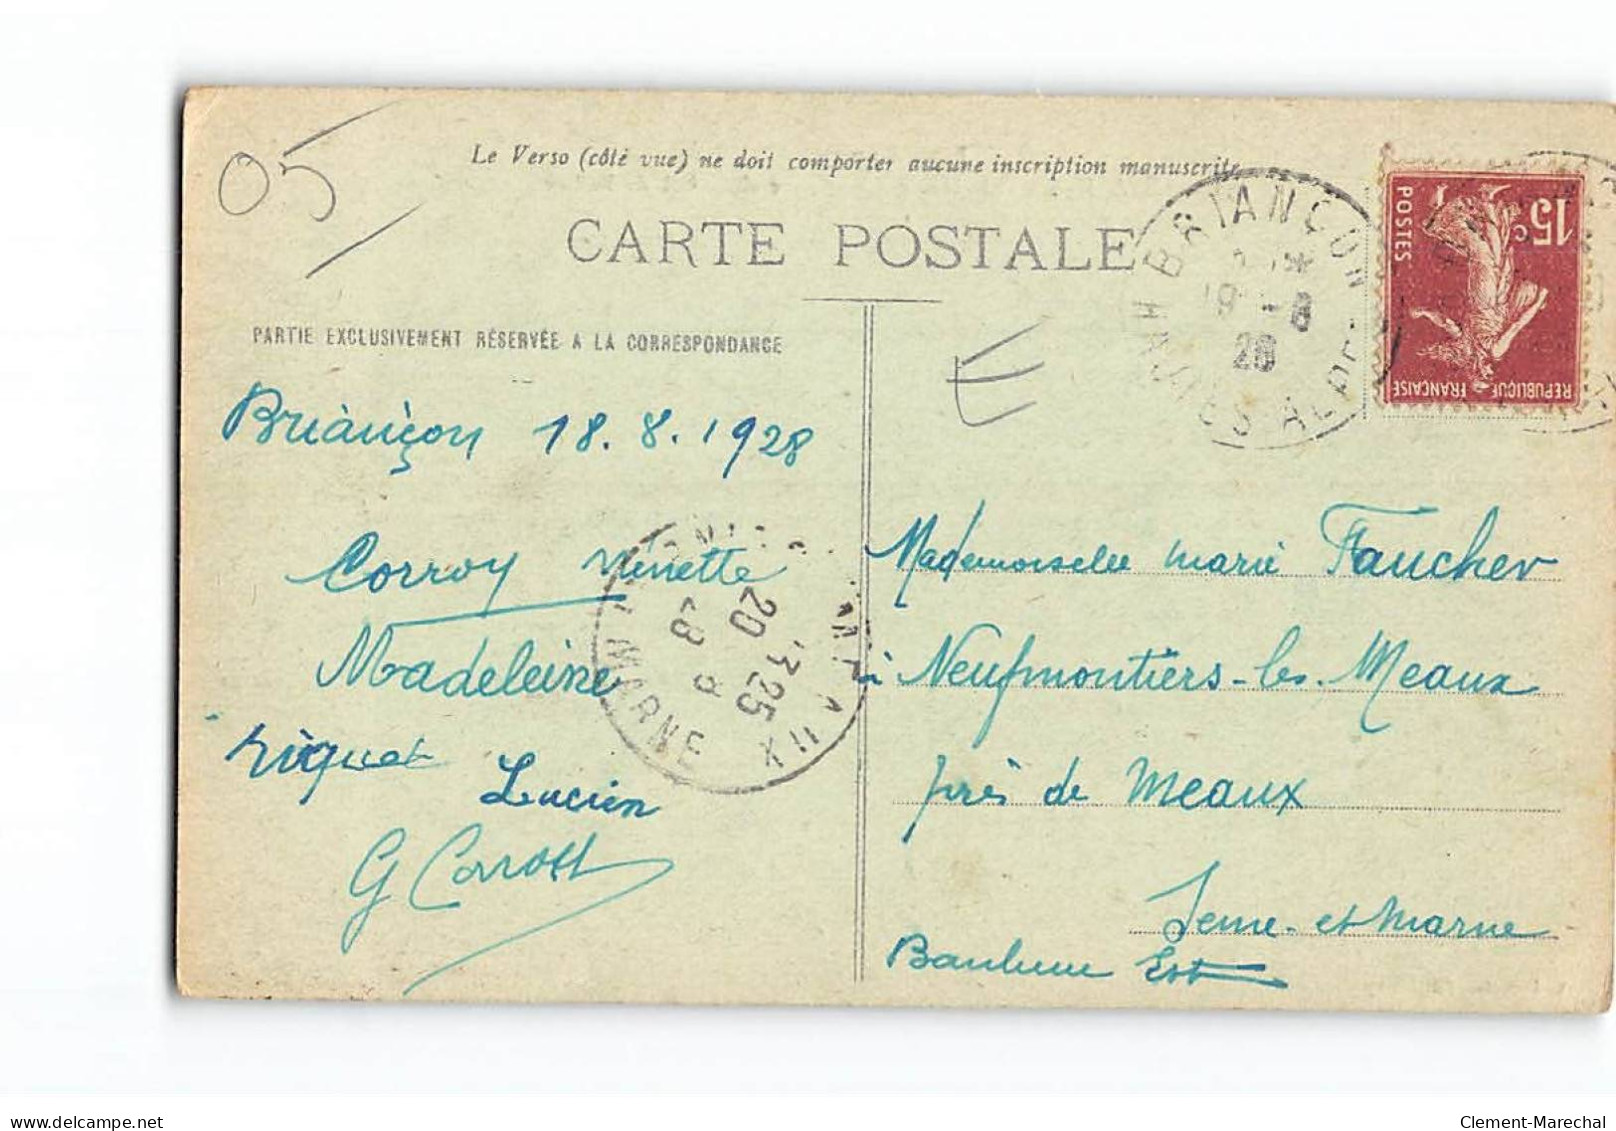 05
Le Verso (côté vue) ne doit comporter aucune inscription manuscrite
CARTE POSTALE
PARTIE EXCLUSIVEMENT RÉSERVÉE A LA CORRESPONDANCE
BRIANÇON
19 -8
28
HAUTES ALPES
POSTES
15c
REPUBLIQUE FRANÇAISE
E
Briançon 18.8.1928
Corroy Ninette
Madeleine
Lucien
G Corrott
MARNE
20 -8
28
1325
Mademoiselle Marie Faucher
à Neufmontiers-les-Meaux
près de Meaux
Seine-et-Marne
Banlieue Est
delcampe.net
Clement-Marechal